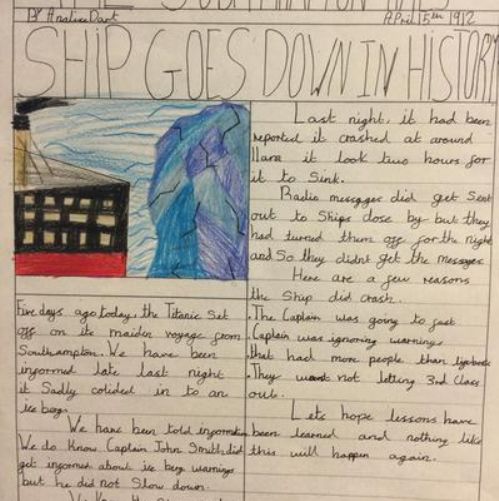 SOUTHAMPTON TIMES
By Anslice Dart
April 15th 1912
SHIP GOES DOWN IN HISTORY
Five days ago today, the Titanic set
off on its maiden voyage from
Southampton. We have been
informed late last night
it Sadly colided in to an
ice berg.
We have been told information
We do know Captain John Smith did
get informed about ice berg warnings
but he did not Slow down.
Last night, it had been
reported it crashed at around
it took two hours for
it to Sink.
Radio messages did get Sent
out to Ships close by but they
had turned them off for the night
and So they didnt get the messages
Here are a few reasons
the Ship did crash.
.The Captain was going to fast
.Captain was ignoring warnings
.that had more people than lifeboats
.They not letting 3rd Class
out.
Lets hope lessons have
been learned and nothing like
this will happen again.